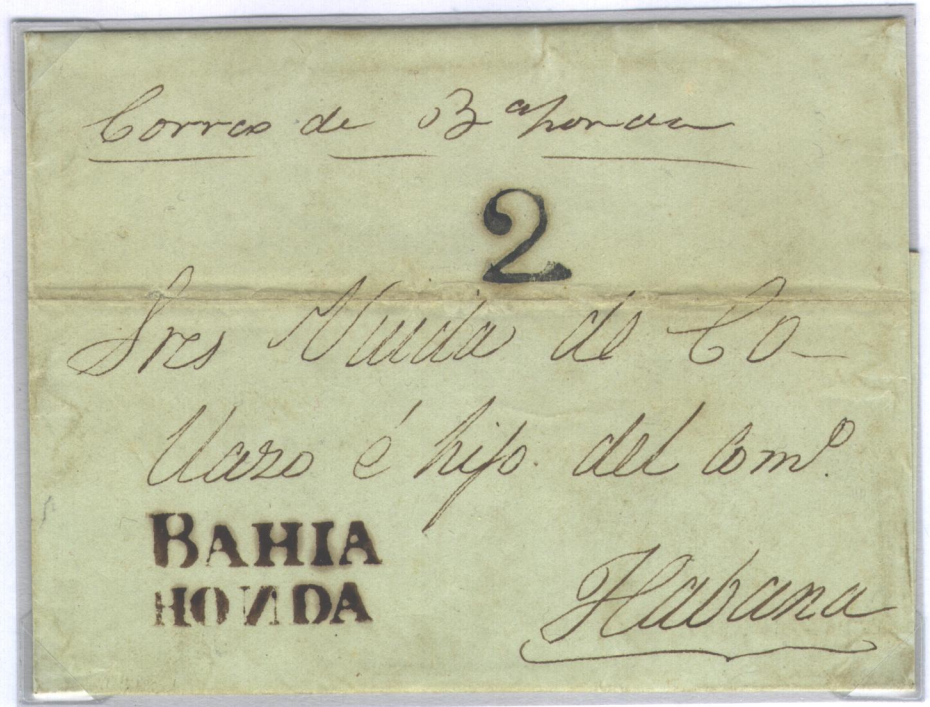 Correo de Bªhonda
2
Sres Viuda de Co-
llazo é hijo. del Comº.
BAHIA
HONDA
Habana